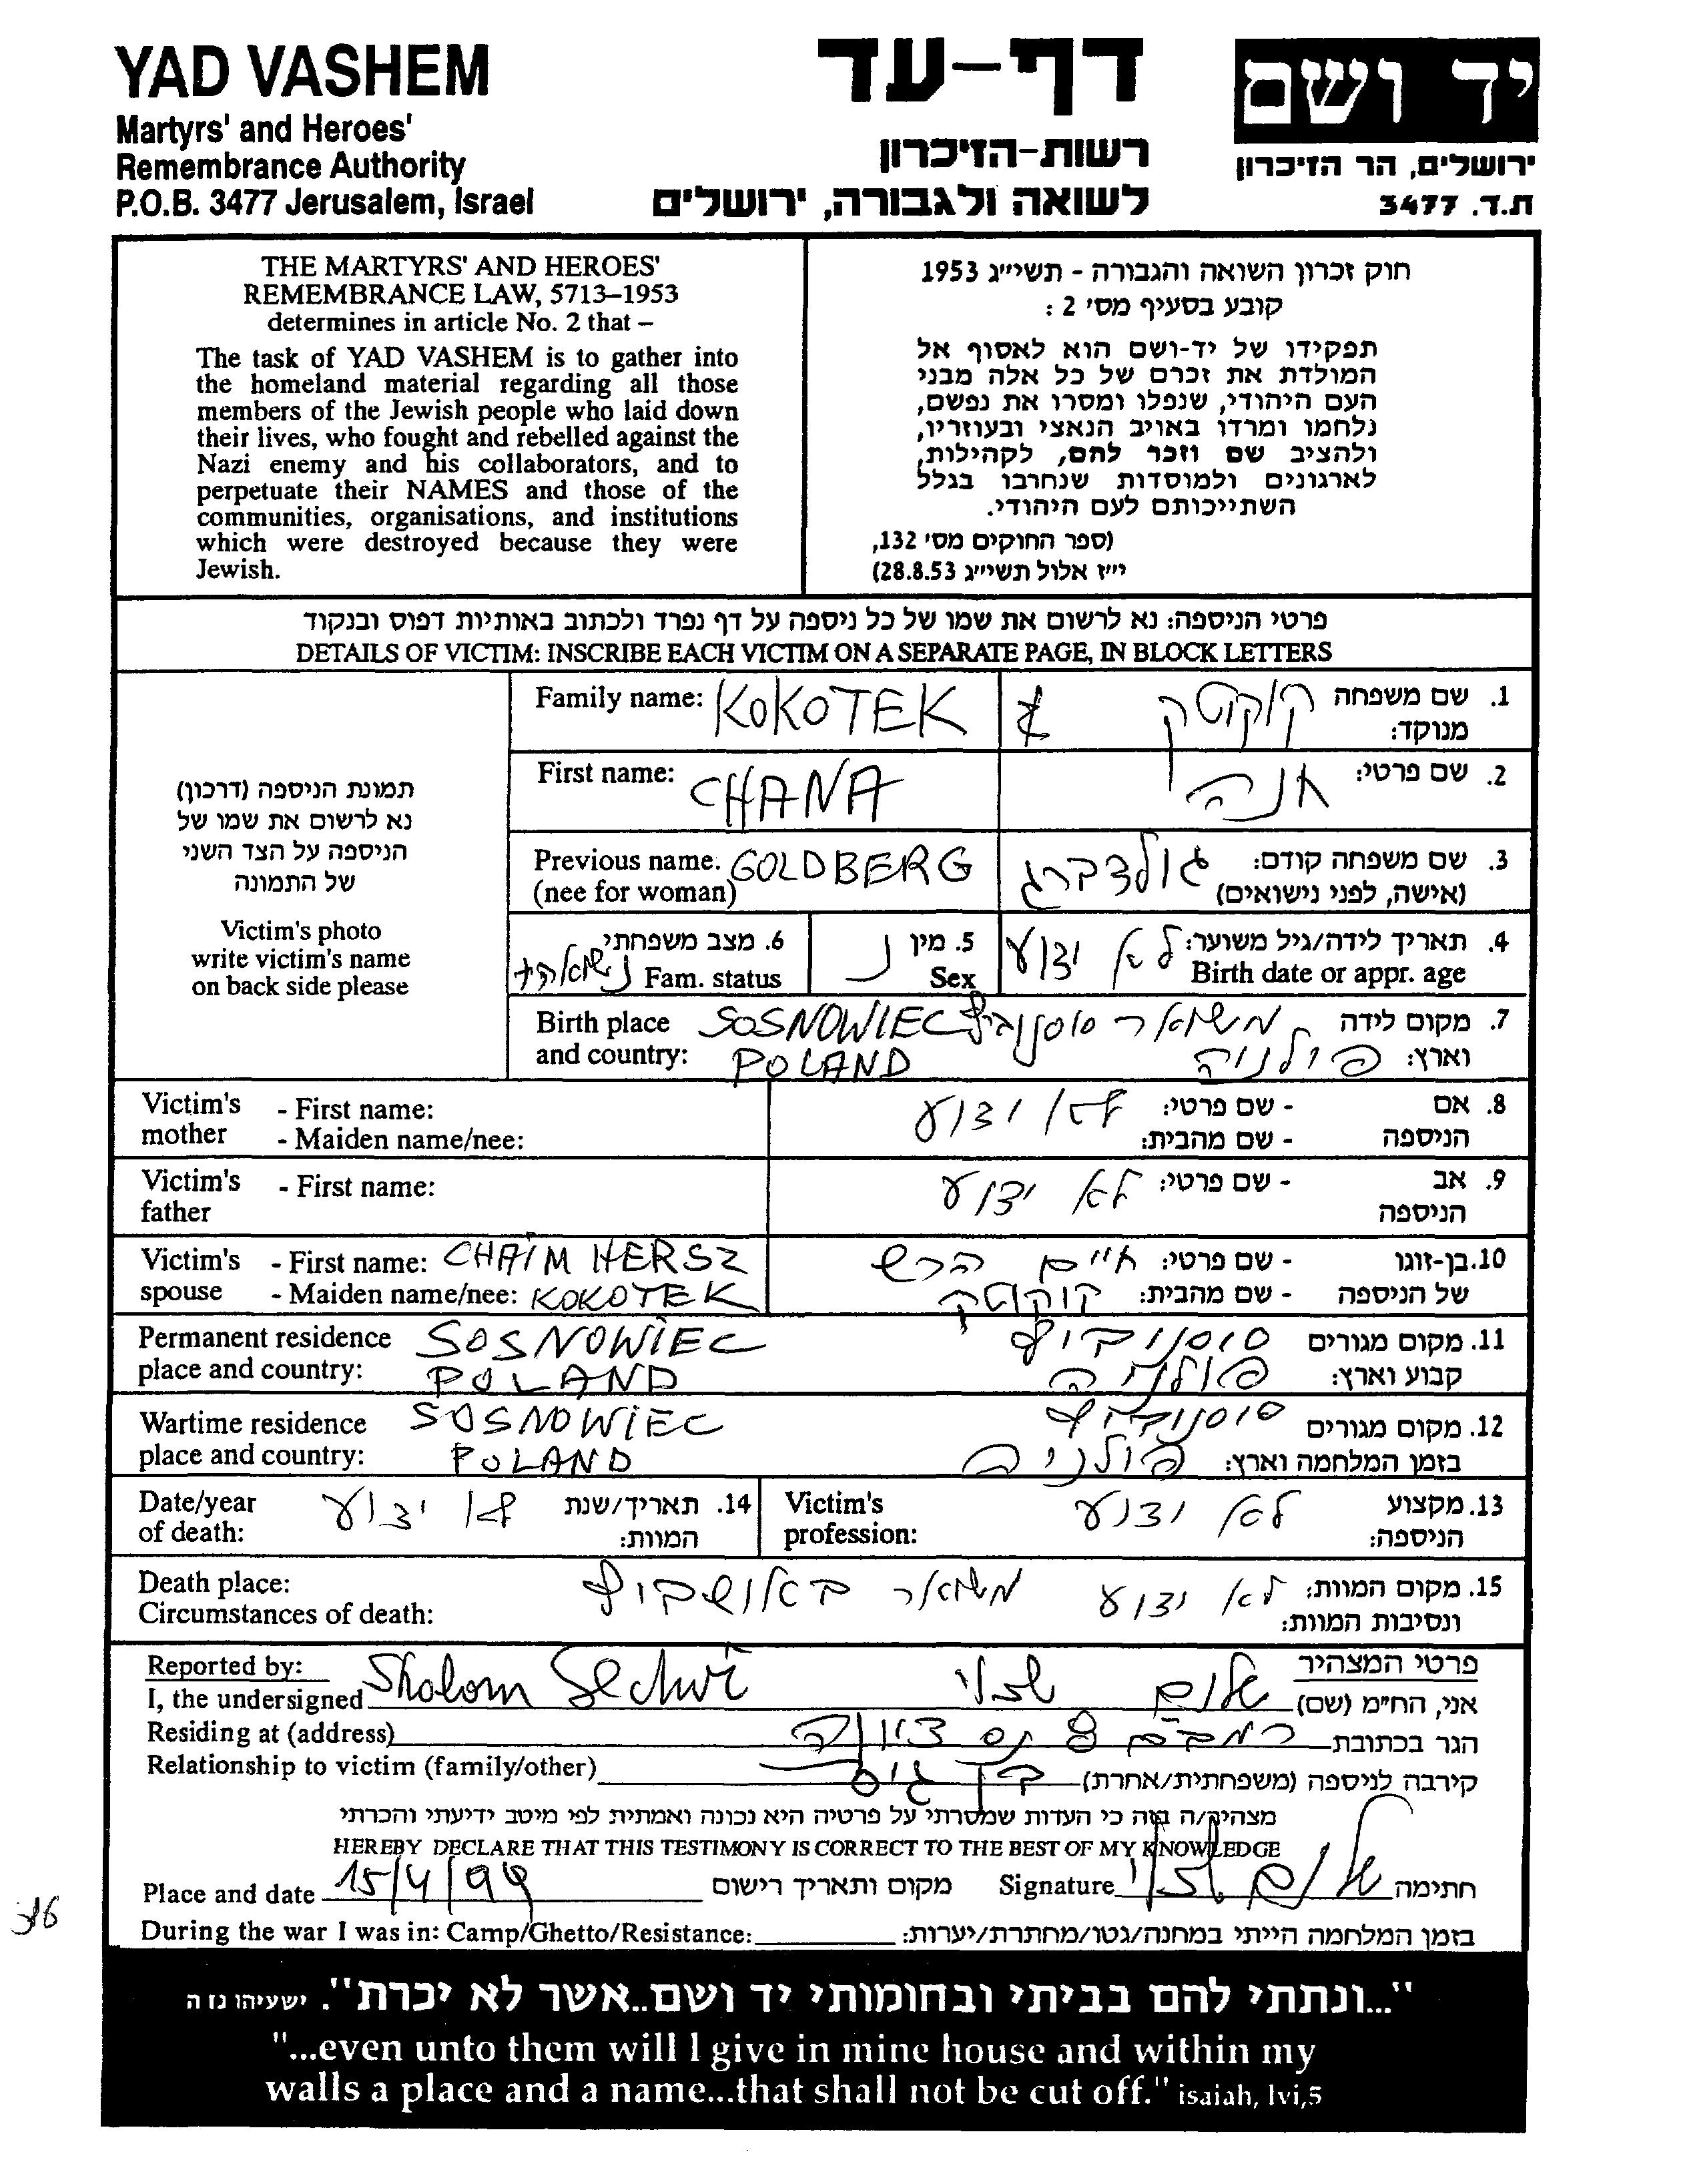 YAD VASHEM
Martyrs' and Heroes'
Remembrance Authority
P.O.B. 3477 Jerusalem, Israel
דף-עד
רשות-הזיכרון
לשואה ולגבורה, ירושלים
יד ושם
ירושלים, הר הזיכרון
ת.ד. 3477
THE MARTYRS' AND HEROES'
REMEMBRANCE LAW, 5713–1953
determines in article No. 2 that –
The task of YAD VASHEM is to gather into
the homeland material regarding all those
members of the Jewish people who laid down
their lives, who fought and rebelled against the
Nazi enemy and his collaborators, and to
perpetuate their NAMES and those of the
communities, organisations, and institutions
which were destroyed because they were
Jewish.
חוק זכרון השואה והגבורה - תשי״ג 1953
קובע בסעיף מס' 2 :
תפקידו של יד-ושם הוא לאסוף אל
המולדת את זכרם של כל אלה מבני
העם היהודי, שנפלו ומסרו את נפשם,
נלחמו ומרדו באויב הנאצי ובעוזריו,
ולהציב שם וזכר להם, לקהילות,
לארגונים ולמוסדות שנחרבו בגלל
השתייכותם לעם היהודי.
(ספר החוקים מס' 132,
י״ז אלול תשי״ג 28.8.53)
פרטי הניספה: נא לרשום את שמו של כל ניספה על דף נפרד ולכתוב באותיות דפוס ובנקוד
DETAILS OF VICTIM: INSCRIBE EACH VICTIM ON A SEPARATE PAGE, IN BLOCK LETTERS
תמונת הניספה (דרכון)
נא לרשום את שמו של
הניספה על הצד השני
של התמונה
Victim's photo
write victim's name
on back side please
Family name: KOKOTEK
1. שם משפחה מנוקד: קוקוטק
First name: CHANA
2. שם פרטי: חנה
Previous name. GOLDBERG
(nee for woman)
3. שם משפחה קודם: גולדברג
(אישה, לפני נישואים)
4. תאריך לידה/גיל משוער: לא ידוע
Birth date or appr. age
5. מין נ
Sex
6. מצב משפחתי
Fam. status
Birth place SOSNOWIEC
and country: POLAND
7. מקום לידה משוער סוסנוביץ
וארץ: פולניה
Victim's mother - First name:
- Maiden name/nee:
8. אם הניספה - שם פרטי: לא ידוע
- שם מהבית:
Victim's father - First name:
9. אב הניספה - שם פרטי: לא ידוע
Victim's spouse - First name: CHAIM HERSZ
- Maiden name/nee: KOKOTEK
10. בן-זוגו של הניספה - שם פרטי: חיים הרש
- שם מהבית: קוקוטק
Permanent residence SOSNOWIEC
place and country: POLAND
11. מקום מגורים סוסנוביץ
קבוע וארץ: פולניה
Wartime residence SOSNOWIEC
place and country: POLAND
12. מקום מגורים סוסנוביץ
בזמן המלחמה וארץ: פולניה
Date/year of death: לא ידוע
14. תאריך/שנת המוות:
Victim's profession:
13. מקצוע הניספה: לא ידוע
Death place:
Circumstances of death:
15. מקום המוות: לא ידוע משוער באושביץ
ונסיבות המוות:
Reported by:
פרטי המצהיר
I, the undersigned Sholom
אני, הח״מ (שם) שלום
Residing at (address)
הגר בכתובת 8 נס ציונה
Relationship to victim (family/other)
קירבה לניספה (משפחתית/אחרת) בן גיס
מצהיר/ה בזה כי העדות שמסרתי על פרטיה היא נכונה ואמתית לפי מיטב ידיעתי והכרתי
HEREBY DECLARE THAT THIS TESTIMONY IS CORRECT TO THE BEST OF MY KNOWLEDGE
Place and date 15/4/99 מקום ותאריך רישום
Signature שלום חתימה
During the war I was in: Camp/Ghetto/Resistance:
בזמן המלחמה הייתי במחנה/גטו/מחתרת/יערות:
"...ונתתי להם בביתי ובחומותי יד ושם..אשר לא יכרת". ישעיהו נו ה
"...even unto them will I give in mine house and within my
walls a place and a name...that shall not be cut off." isaiah, lvi,5